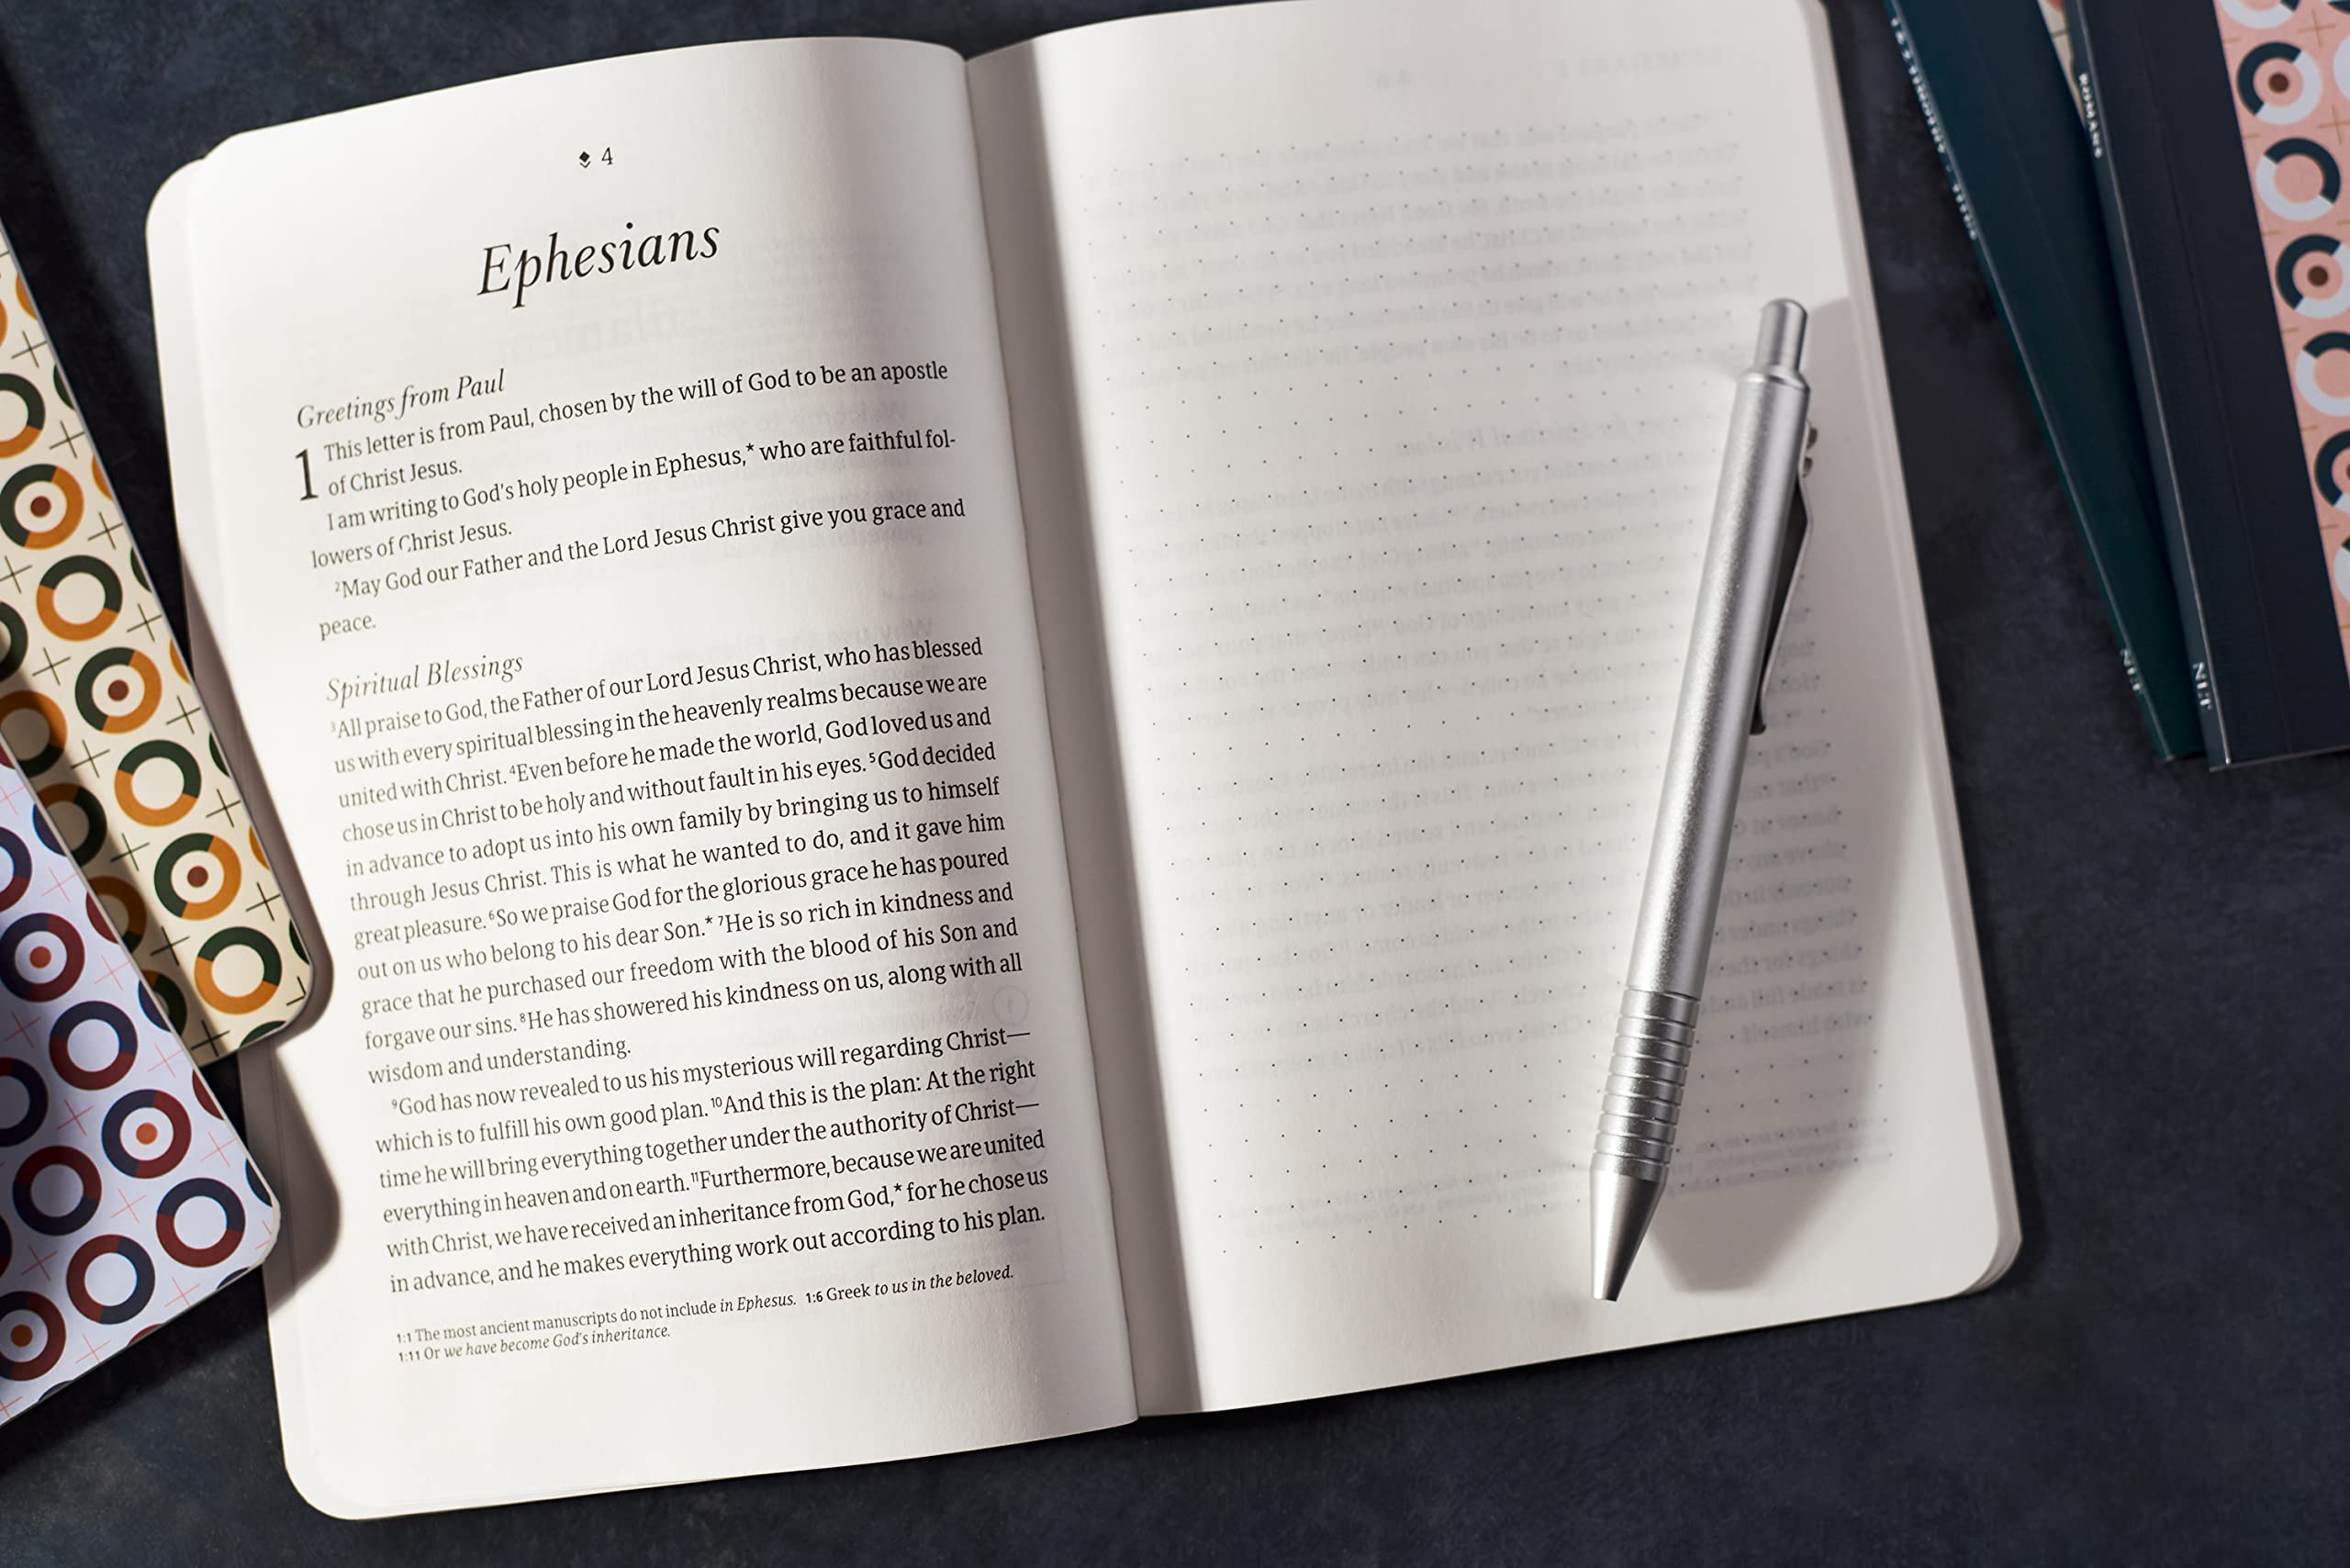 4
Ephesians
Greetings from Paul
1 This letter is from Paul, chosen by the will of God to be an apostle
of Christ Jesus.
I am writing to God's holy people in Ephesus,* who are faithful fol-
lowers of Christ Jesus.
²May God our Father and the Lord Jesus Christ give you grace and
peace.
Spiritual Blessings
³All praise to God, the Father of our Lord Jesus Christ, who has blessed
us with every spiritual blessing in the heavenly realms because we are
united with Christ. ⁴Even before he made the world, God loved us and
chose us in Christ to be holy and without fault in his eyes. ⁵God decided
in advance to adopt us into his own family by bringing us to himself
through Jesus Christ. This is what he wanted to do, and it gave him
great pleasure. ⁶So we praise God for the glorious grace he has poured
out on us who belong to his dear Son.* ⁷He is so rich in kindness and
grace that he purchased our freedom with the blood of his Son and
forgave our sins. ⁸He has showered his kindness on us, along with all
wisdom and understanding.
⁹God has now revealed to us his mysterious will regarding Christ—
which is to fulfill his own good plan. ¹⁰And this is the plan: At the right
time he will bring everything together under the authority of Christ—
everything in heaven and on earth. ¹¹Furthermore, because we are united
with Christ, we have received an inheritance from God,* for he chose us
in advance, and he makes everything work out according to his plan.
1:1 The most ancient manuscripts do not include in Ephesus. 1:6 Greek to us in the beloved.
1:11 Or we have become God's inheritance.
ROMANS
NLT
NLT